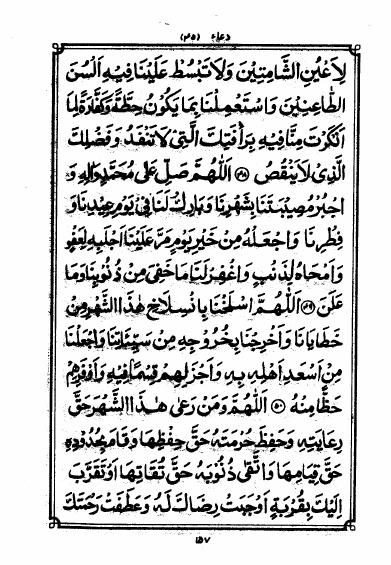 دعاء (۴۵)
لِاَعْيُنِ الشَّامِتِيْنَ وَلَا تَبْسُطْ عَلَيْنَا فِيْهِ اَلْسُنَ
الطَّاعِنِيْنَ وَاسْتَعْمِلْنَا بِمَا يَكُوْنُ حِطَّةً وَكَفَّارَةً لِمَا
اَنْكَرْتَ مِنَّا فِيْهِ بِرَاْفَتِكَ الَّتِىْ لَا تَنْفَدُ وَفَضْلِكَ
الَّذِىْ لَا يَنْقُصُ (۴۸) اَللّٰهُمَّ صَلِّ عَلٰى مُحَمَّدٍ وَاٰلِهٖ وَ
اجْبُرْ مُصِيْبَتَنَا بِشَهْرِنَا وَبَارِكْ لَنَا فِىْ يَوْمِ عِيْدِنَا وَ
فِطْرِنَا وَاجْعَلْهُ مِنْ خَيْرِ يَوْمٍ مَرَّ عَلَيْنَا اَجْلَبِهٖ لِعَفْوٍ
وَاَمْحَاهُ لِذَنْبٍ وَاغْفِرْ لَنَا مَا خَفِىَ مِنْ ذُنُوْبِنَا وَمَا
عَلَنَ (۴۹) اَللّٰهُمَّ اسْلَخْنَا بِانْسِلَاخِ هٰذَا الشَّهْرِ مِنْ
خَطَايَانَا وَاَخْرِجْنَا بِخُرُوْجِهٖ مِنْ سَيِّئَاتِنَا وَاجْعَلْنَا
مِنْ اَسْعَدِ اَهْلِهٖ بِهٖ وَاَجْزَلِهِمْ قِسْمًا فِيْهِ وَاَوْفَرِهِمْ
حَظًّا مِنْهُ (۵۰) اَللّٰهُمَّ وَمَنْ رَعٰى هٰذَا الشَّهْرَ حَقَّ
رِعَايَتِهٖ وَحَفِظَ حُرْمَتَهُ حَقَّ حِفْظِهَا وَقَامَ بِحُدُوْدِهٖ
حَقَّ قِيَامِهَا وَاتَّقٰى ذُنُوْبَهُ حَقَّ تُقَاتِهَا اَوْ تَقَرَّبَ
اِلَيْكَ بِقُرْبَةٍ اَوْجَبَتْ رِضَاكَ لَهُ وَعَطَفَتْ رَحْمَتَكَ